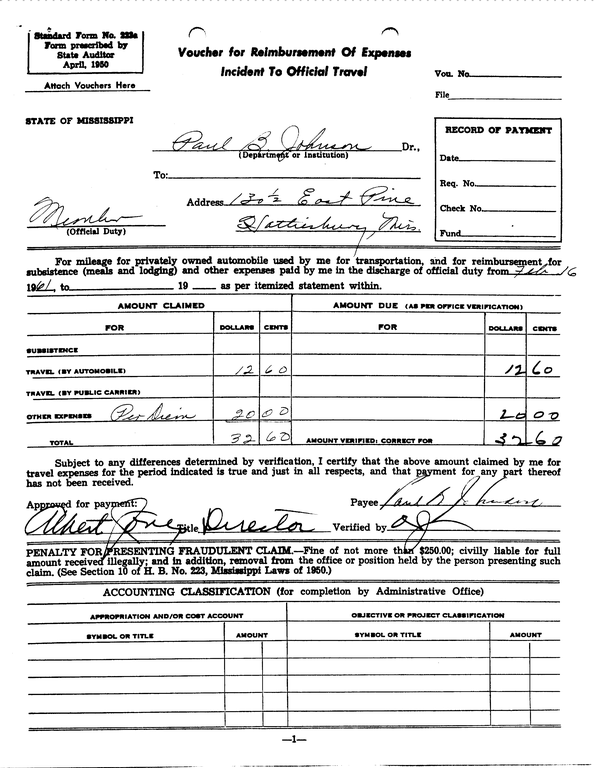 Standard Form No. 223a
Form prescribed by
State Auditor
April, 1950
Attach Vouchers Here
Voucher for Reimbursement Of Expenses
Incident To Official Travel
Vou. No.
File
STATE OF MISSISSIPPI
Paul B. Johnson Dr.,
(Department or Institution)
To:
Address 130½ East Pine
Hattiesburg, Miss.
Member
(Official Duty)
RECORD OF PAYMENT
Date
Req. No.
Check No.
Fund
For mileage for privately owned automobile used by me for transportation, and for reimbursement for
subsistence (meals and lodging) and other expenses paid by me in the discharge of official duty from Feb 16
1961, to 19 as per itemized statement within.
AMOUNT CLAIMED AMOUNT DUE (AS PER OFFICE VERIFICATION)
FOR DOLLARS CENTS FOR DOLLARS CENTS
SUBSISTENCE
TRAVEL (BY AUTOMOBILE) 12 60 12 60
TRAVEL (BY PUBLIC CARRIER)
OTHER EXPENSES Per Diem 20 00 20 00
TOTAL 32 60 AMOUNT VERIFIED: CORRECT FOR 32 60
Subject to any differences determined by verification, I certify that the above amount claimed by me for
travel expenses for the period indicated is true and just in all respects, and that payment for any part thereof
has not been received.
Approved for payment: Payee Paul B. Johnson
Albert Jones Title Director Verified by
PENALTY FOR PRESENTING FRAUDULENT CLAIM.—Fine of not more than $250.00; civilly liable for full
amount received illegally; and in addition, removal from the office or position held by the person presenting such
claim. (See Section 10 of H. B. No. 223, Mississippi Laws of 1950.)
ACCOUNTING CLASSIFICATION (for completion by Administrative Office)
APPROPRIATION AND/OR COST ACCOUNT OBJECTIVE OR PROJECT CLASSIFICATION
SYMBOL OR TITLE AMOUNT SYMBOL OR TITLE AMOUNT
—1—